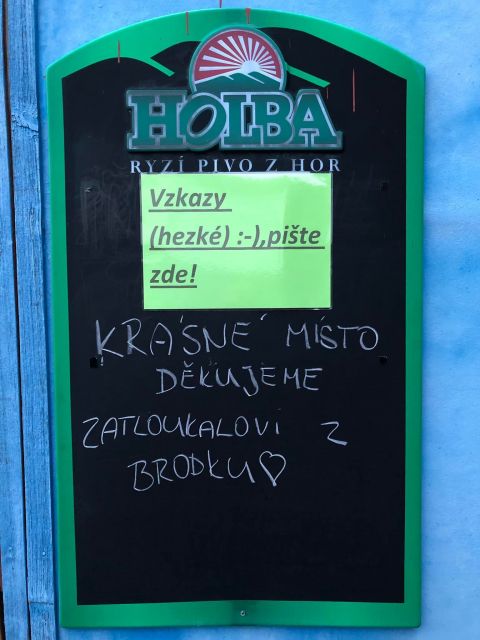 HOLBA
RYZÍ PIVO Z HOR
Vzkazy
(hezké) :-),pište
zde!
KRÁSNÉ MÍSTO
DĚKUJEME
ZATLOUKALOVI Z
BRODKU♡